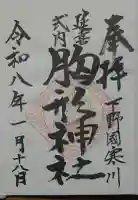 奉拝
下野國寒川
延喜式内
胸形神社
令和八年一月十八日